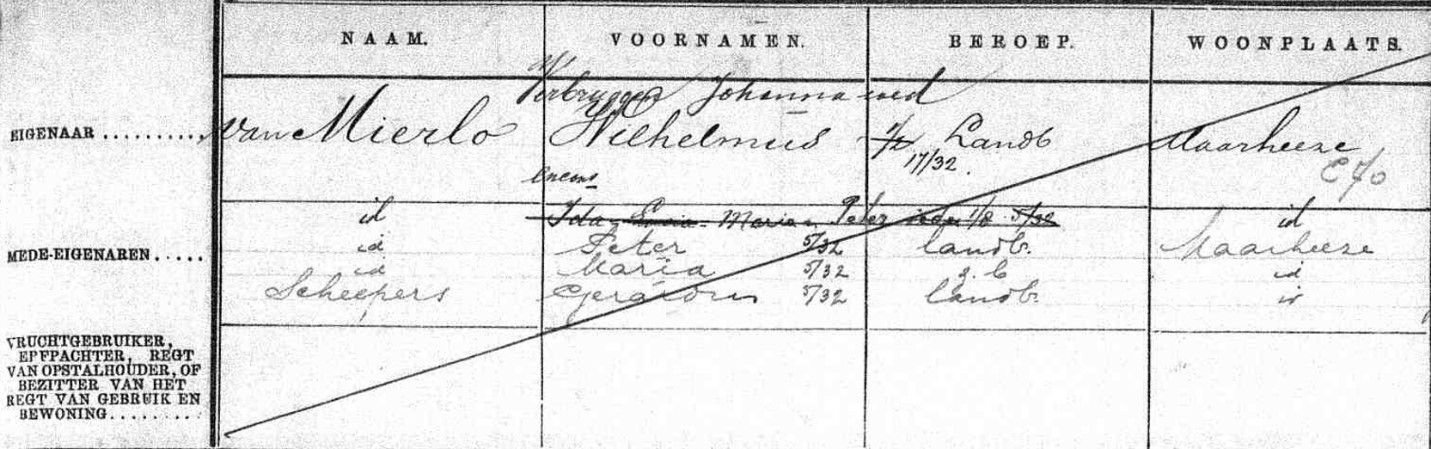 NAAM. VOORNAMEN. BEROEP. WOONPLAATS.
Verbruggen Johanna wed
EIGENAAR .......... van Mierlo Wilhelmus 1/2 Landb Maarheeze
17/32.
id Ida Maria Peter ieder 1/8 5/32 id
MEDE-EIGENAREN ..... id Peter 5/32 landb. Maarheeze
id Maria 5/32 z.b id
Scheepers Gerardus 5/32 landb. id
VRUCHTGEBRUIKER,
ERFPACHTER, REGT
VAN OPSTALHOUDER, OF
BEZITTER VAN HET
REGT VAN GEBRUIK EN
BEWONING.........